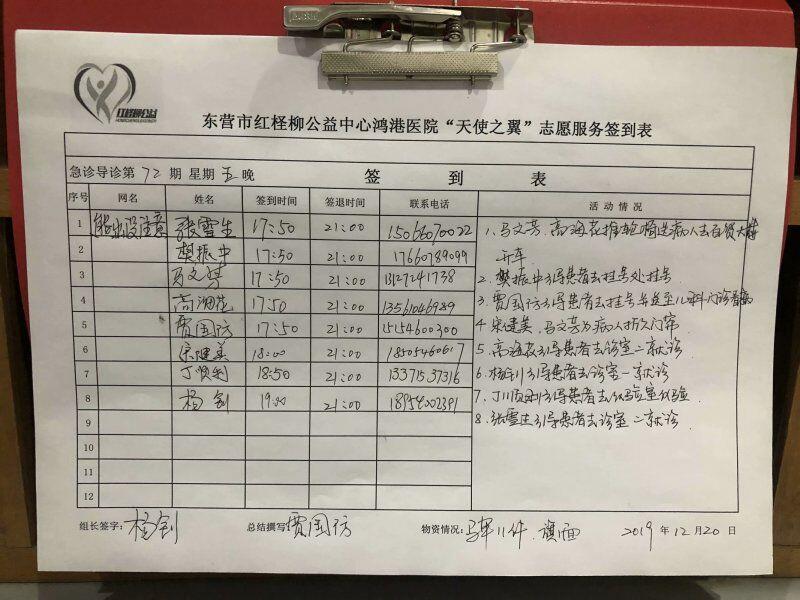 红柽柳公益
HONGCHENGLIU GONGYI
东营市红柽柳公益中心鸿港医院“天使之翼”志愿服务签到表
急诊导诊第 72 期 星期 五 晚 签 到 表
序号 网名 姓名 签到时间 签退时间 联系电话 活动情况
1 张雪生 17:50 21:00
2 樊振中 17:50 21:00 17660789099
3 17:50 21:00 13127241738
4 高海花 17:50 21:00 13561046989
5 贾国防 17:50 21:00 15154600300
6 宋健美 18:00 21:00 18505460617
7 丁顺利 18:50 21:00 13371537316
8 杨钊 19:00 21:00 18954002391
9
10
11
12
1、马文芳、高海花推轮椅送病人去
开车
2、樊振中引导患者去挂号处挂号
3、贾国防引导患者去挂号并送至儿科门诊看病
4、宋健美、马文芳为病人拆门帘
5、高海花引导患者去诊室二就诊
6、杨钊引导患者去诊室一就诊
7、丁顺利引导患者去化验室化验
8、张雪生引导患者去诊室二就诊
组长签字: 杨钊 总结撰写: 贾国防 物资情况: 马甲11件、旗1面 2019 年 12 月 20 日